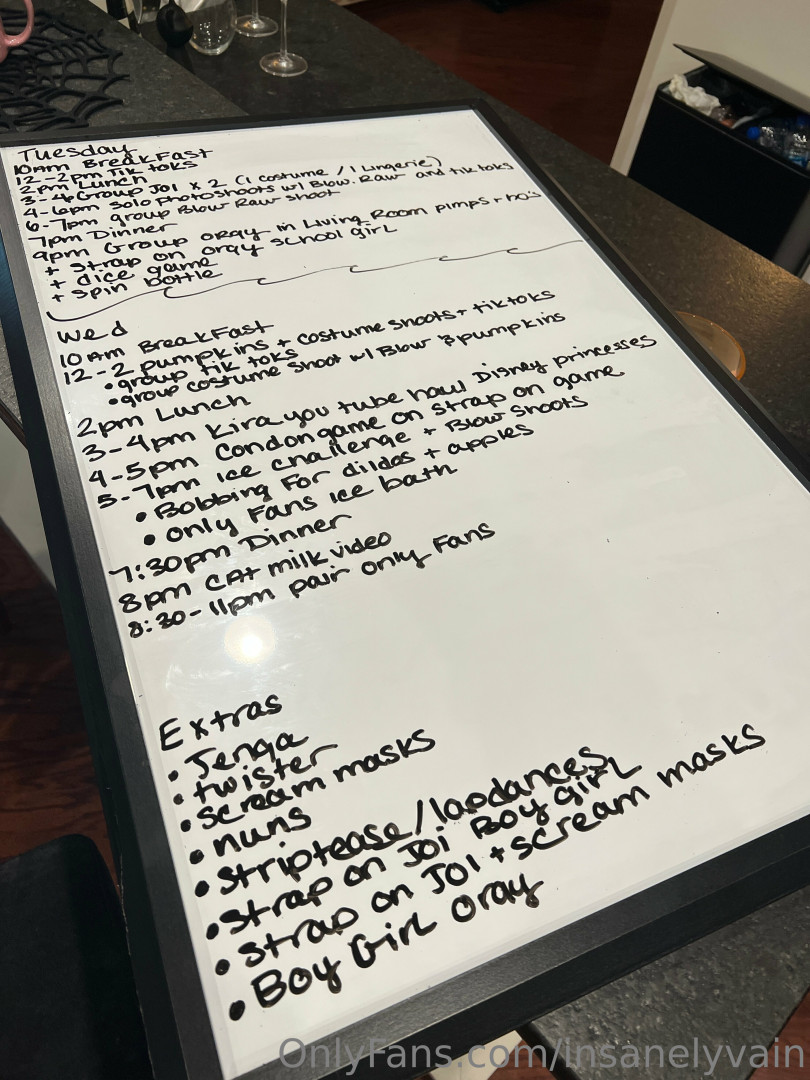 Tuesday
10Am BreakFast
12-2pm Tik toks
2pm Lunch
3-4p Group JOI x 2 (1 costume / 1 Lingerie)
4-6pm solo Photoshoots w/ Blow. Raw and tik toks
6-7pm group Blow Raw shoot
7pm Dinner
9pm Group orgy in Living Room pimps + ho's
+ strap on orgy school girl
+ dice game
+ spin bottle
Wed
10Am BreakFast
12-2 pumpkins + costume shoots + tiktoks
• group tik toks
• group costume shoot w/ Blow & pumpkins
2pm Lunch
3-4pm Kira you tube haul Disney princesses
4-5pm Condom game on strap on game
5-7pm ice challenge + Blow shoots
• Bobbing For dildos + apples
• Only Fans ice bath
7:30pm Dinner
8pm CAt milk video
8:30-11pm pair only Fans
Extras
• Jenga
• twister
• scream masks
• nuns
• striptease/lapdances
• strap on JOi Boy girl
• strap on JOI + scream masks
• Boy Girl orgy
OnlyFans.com/insanelyvain